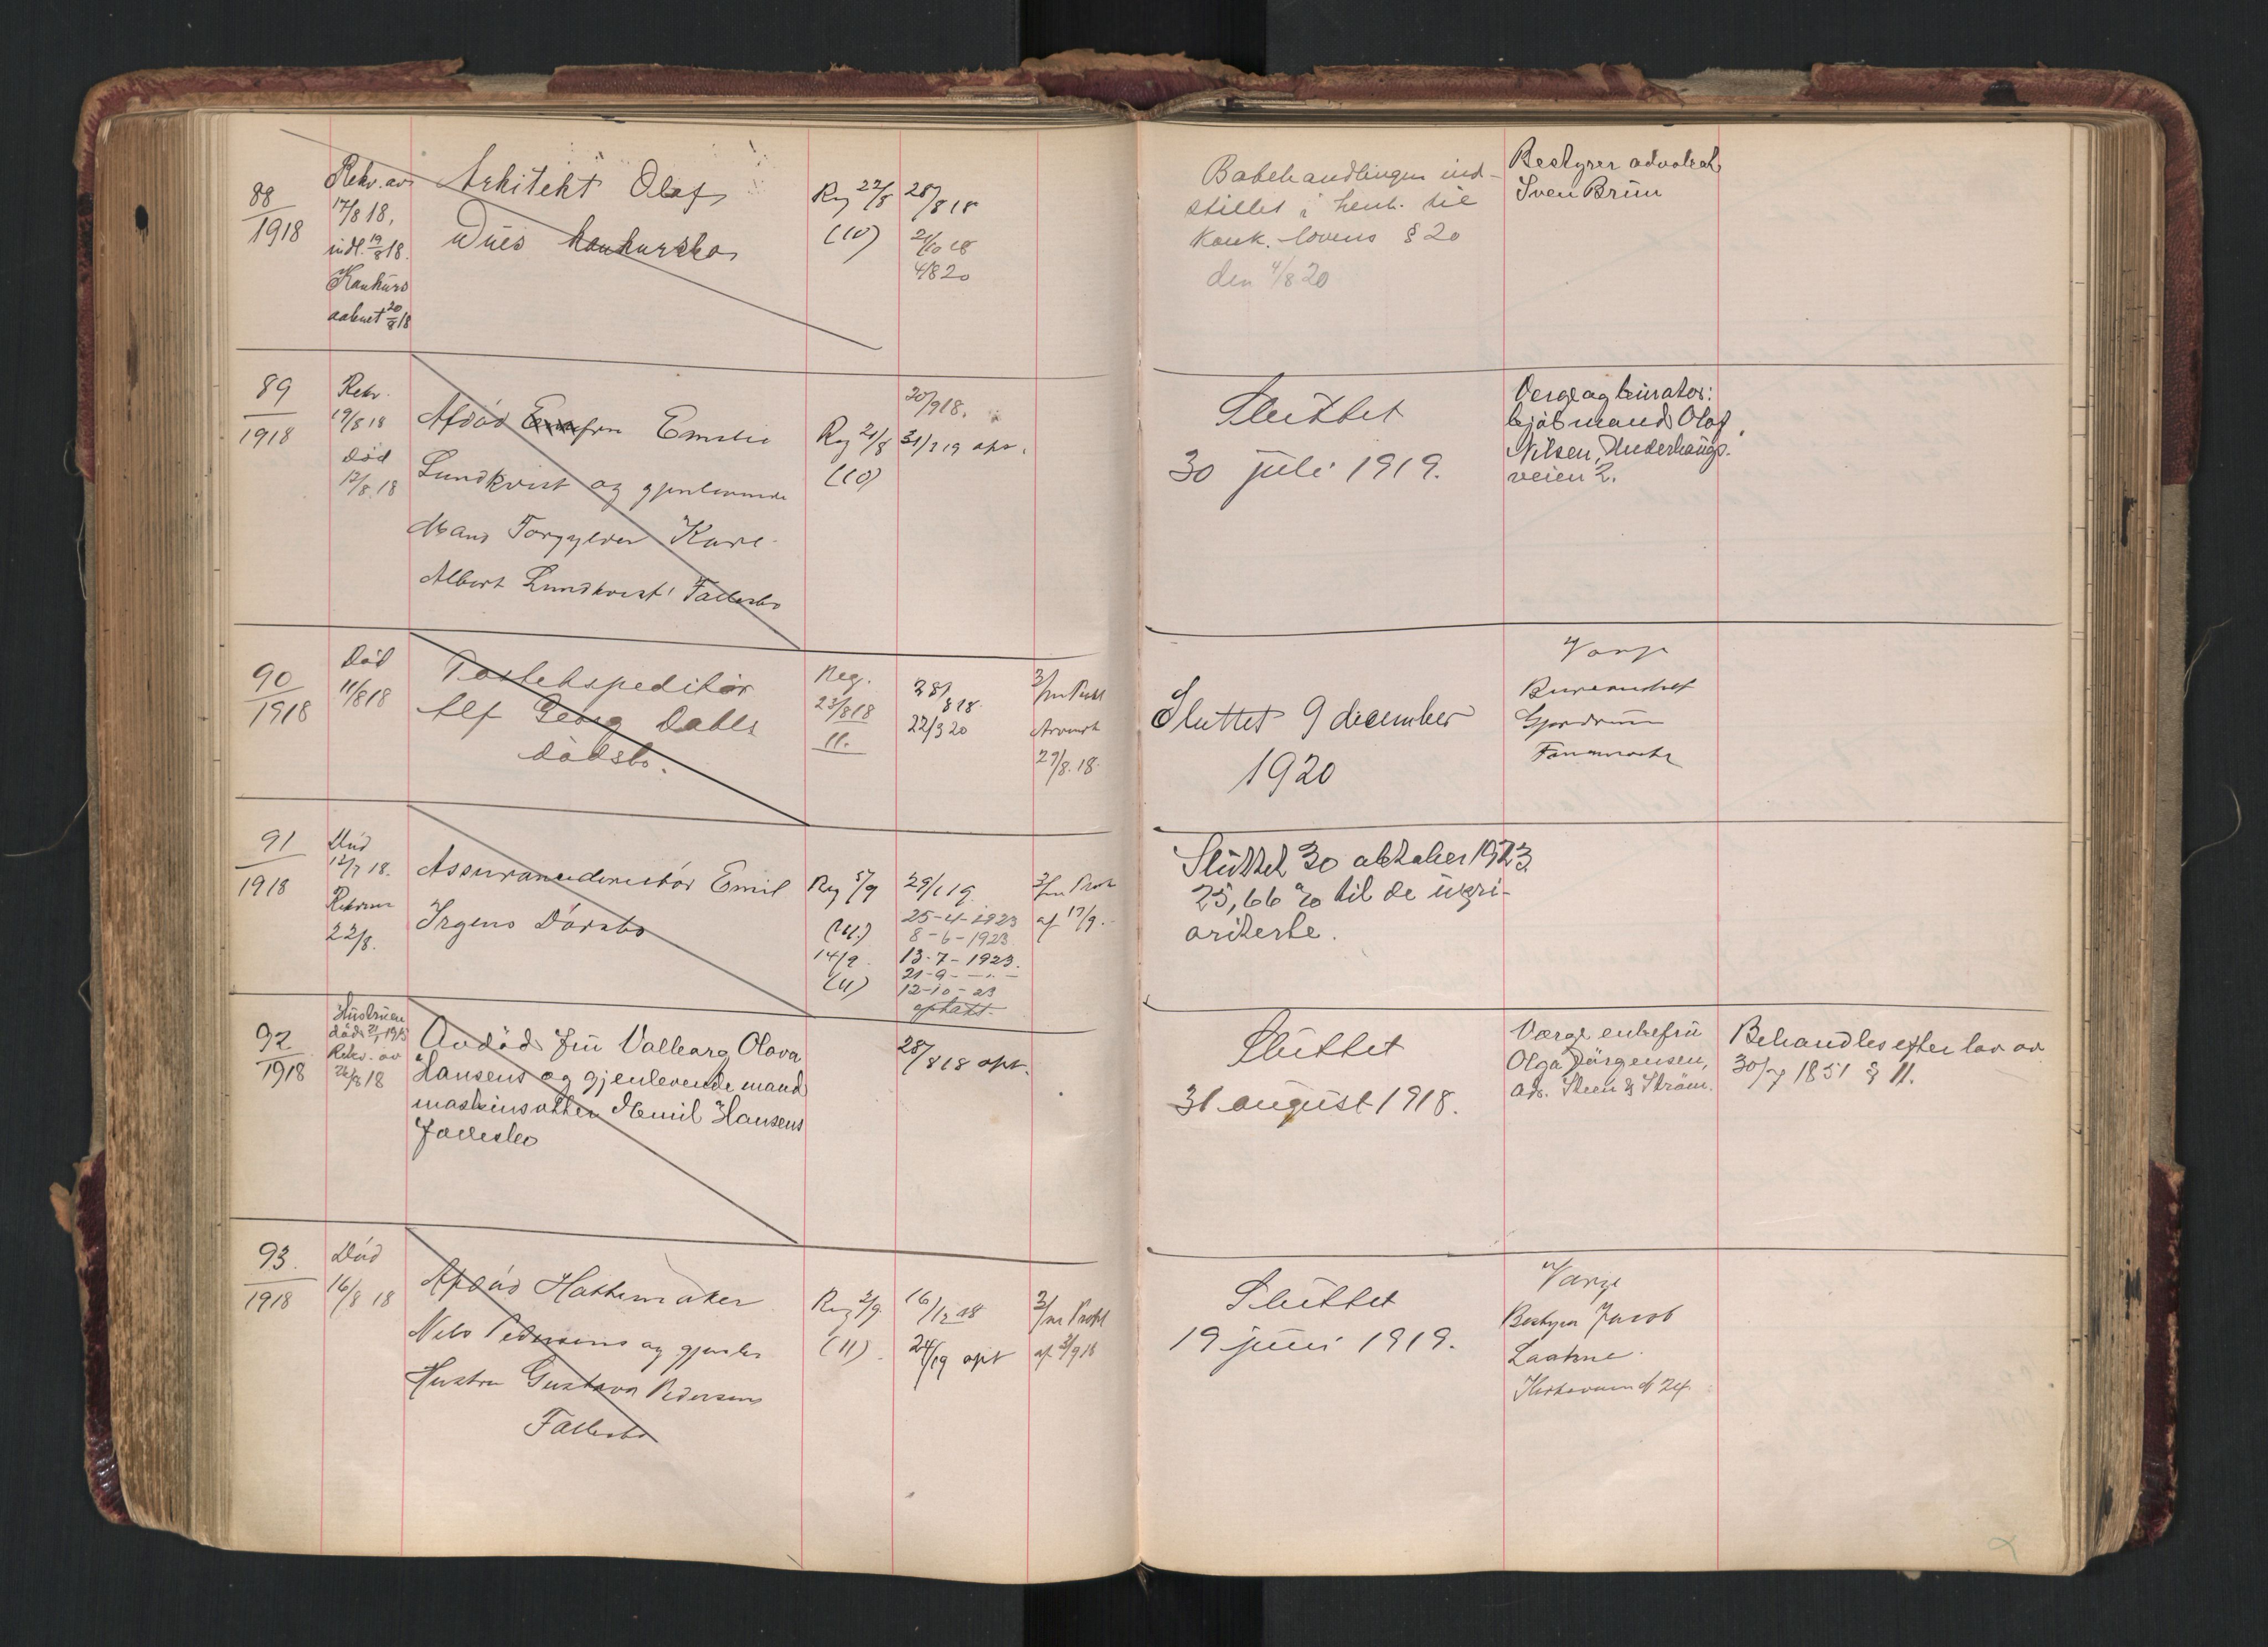 88
1918
Rekv. av
17/8 18,
indl. 19/8 18.
Konkurs
aabnet 20/8 18
Arkitekt Olaf
Dues konkursbo
Reg 22/8
(10)
28/8 18
21/10 18
4/8 20
Bobehandlingen ind-
stillet i henh. til
konk. lovens § 20
den 4/8 20
Bestyrer advokat
Sven Brun
89
1918
Rekv.
19/8 18
død
12/8 18
Afdød fru Emelie
Lundkvist og gjenlevende
Mand Forgylder Karl
Albert Lundkvist' Fællesbo
Reg 21/8
(10)
30/9 18.
31/7 19 opt.
Sluttet
30 juli 1919.
Verge og kurator:
kjøbmand Olaf
Nilsen,
veien 2.
90
1918
Død
11/8 18
Postekspeditør
Alf Georg Dahls
dødsbo.
Reg.
23/8 18
11.
28/8 18.
22/3 20
3/m Prot
29/8. 18.
Sluttet 9 december
1920
Værge
Bureauchef
Gjerdrum
91
1918
Død
12/7 18.
22/8.
Assurancedirektør Emil
Irgens Dødsbo
Reg 5/9
(11.)
14/9
(11)
29/1 19.
25-4-1923
8-6-1923
13-7-1923.
21-9- — " —
12-10-23
optat.
3/m Prot
af 17/9.
Sluttet 30 oktober 1923
25,66 % til de upri-
oriterte.
92
1918
Hustruen
død 21/1 1915
Rekv. av
26/8 18
Avdød fru Valborg Olava
Hansens og gjenlevende mand
maskinsætter Emil Hansens
fællesbo
28/8 18 opt.
Sluttet
31 august 1918.
Værge enkefru
Olga Jørgensen,
adr. Steen & Strøm.
Behandles efter lov av
30/7 1851 § 11.
93.
1918
Død
16/8 18
Afdød Hattemaker
Nils Pedersens og gjenlev
Hustru Gustava Pedersens
Fællesbo
Reg 2/9.
(11).
16/12 18
24/6 19 opt
3/m Prot
af 2/9 18
Sluttet
19 juni 1919.
Værge
Bestyrer Jacob
24